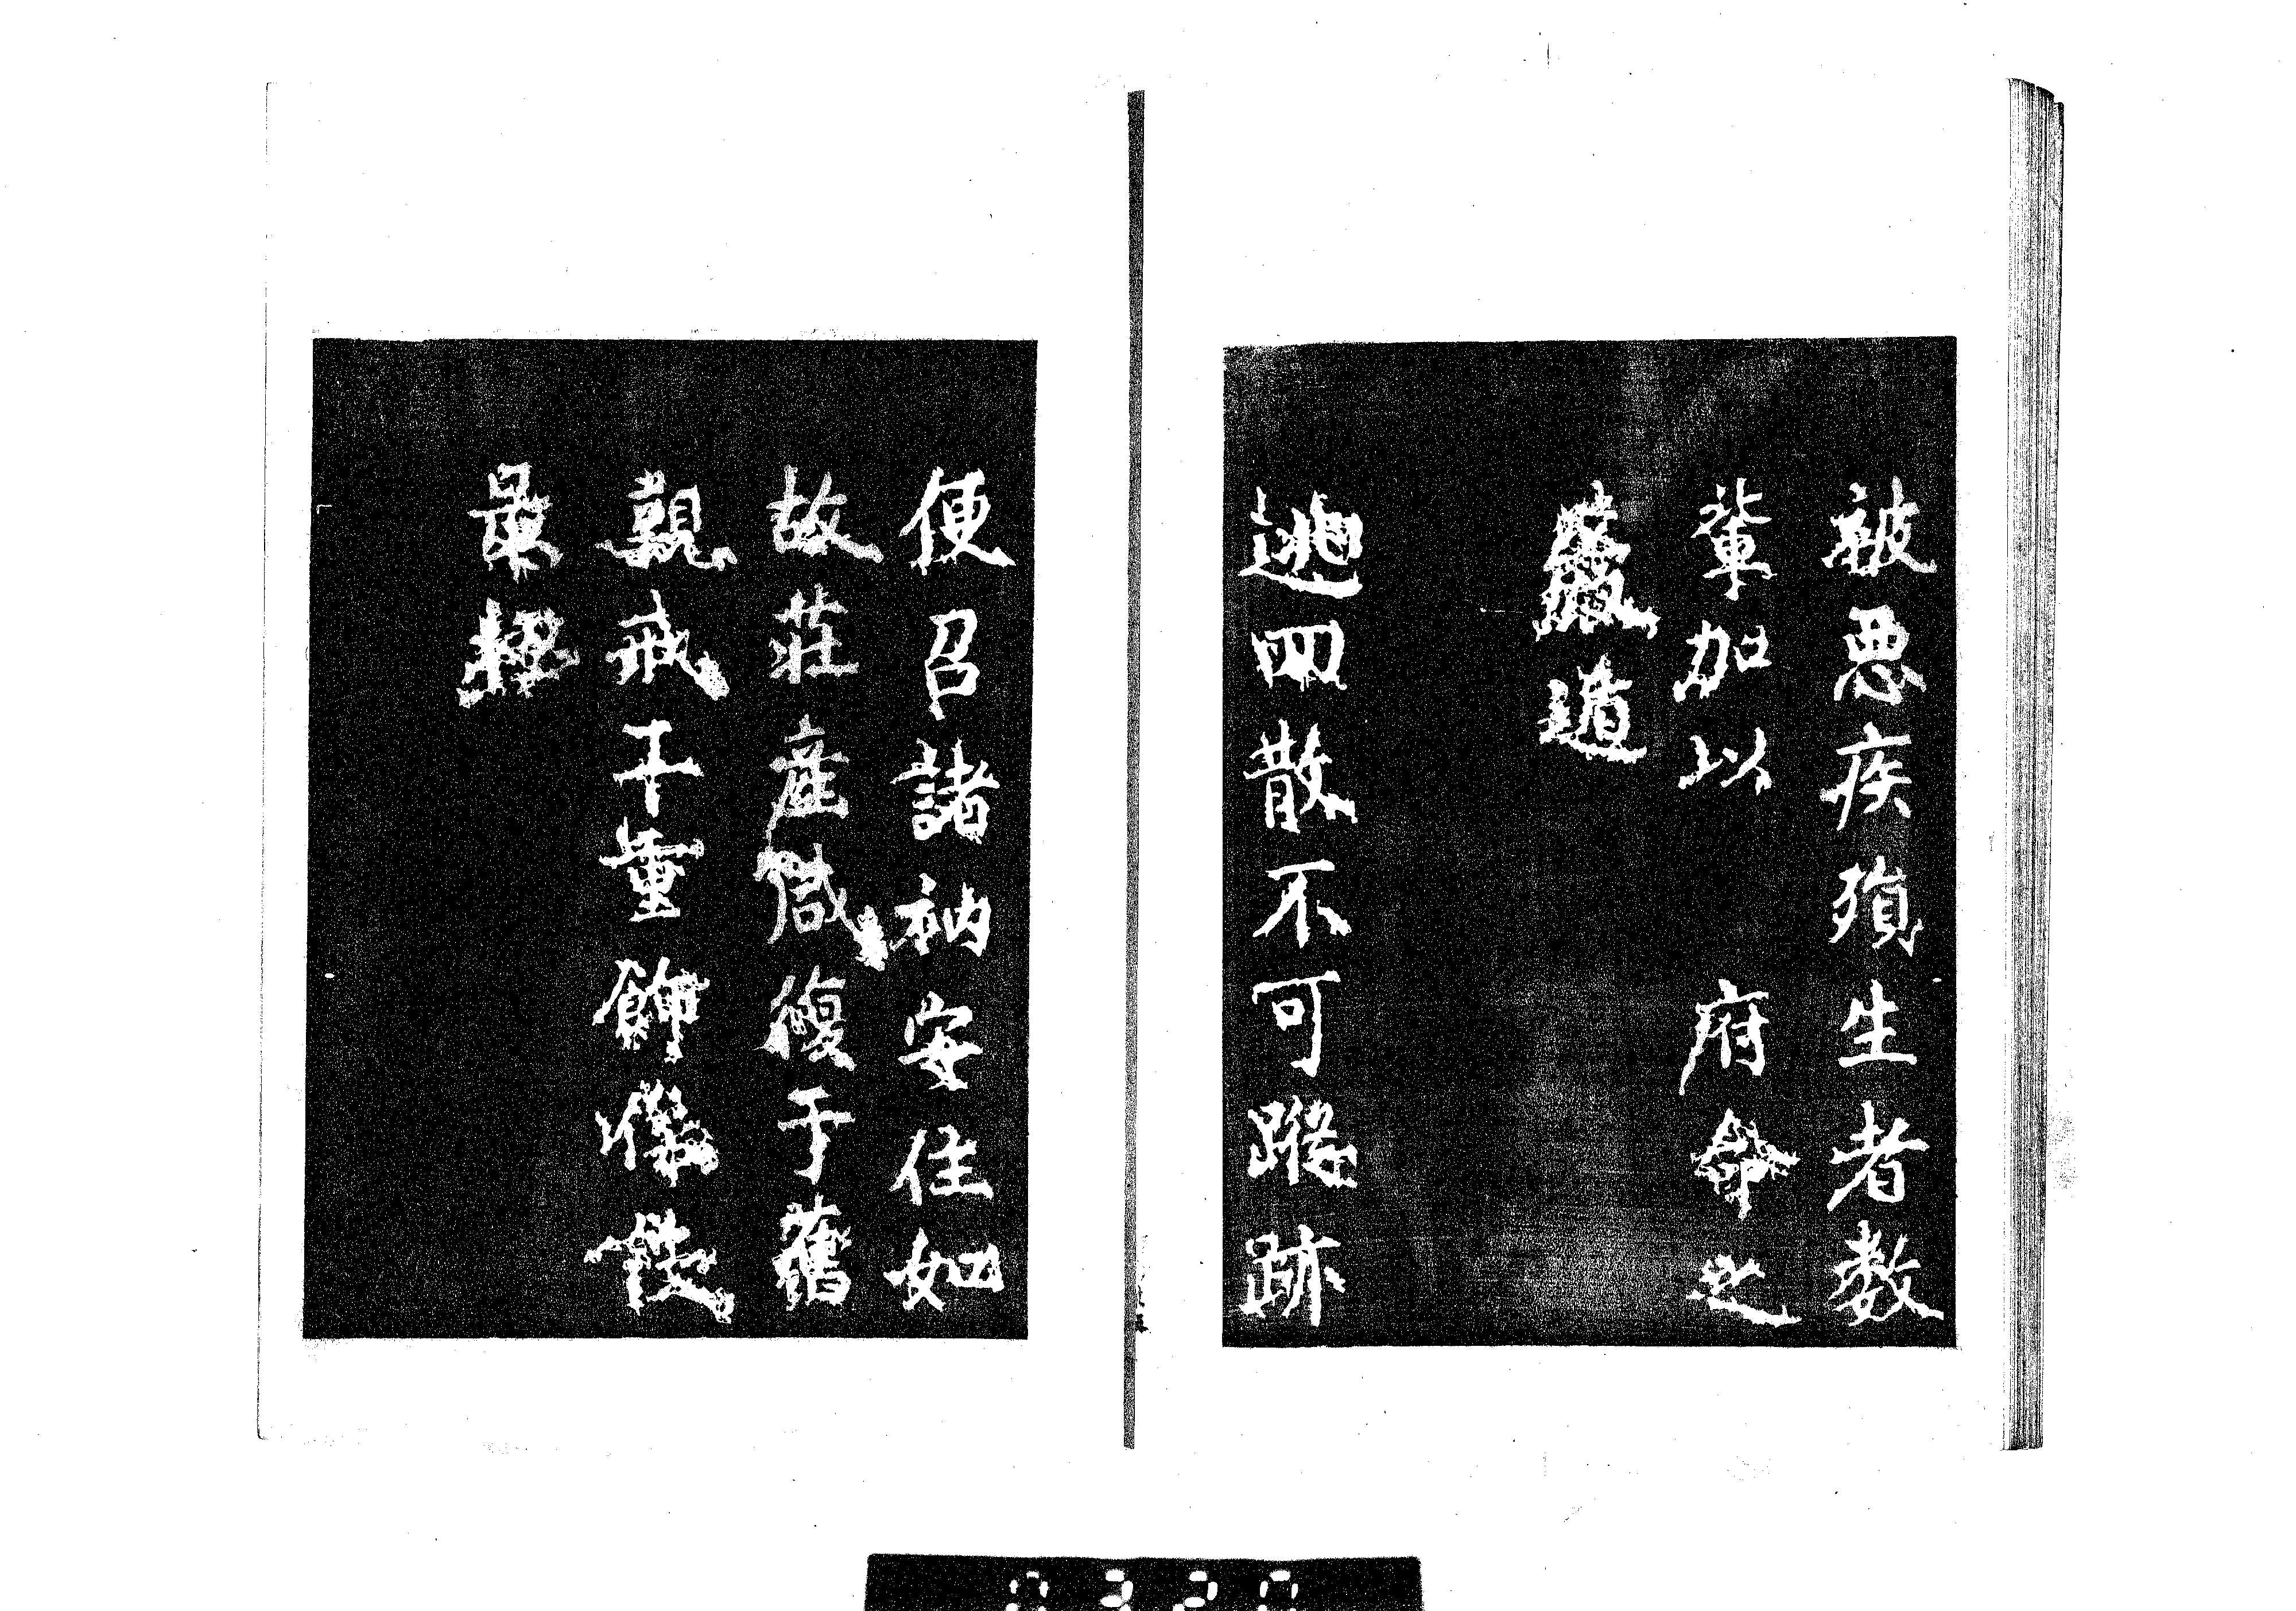 被惡疾殞生者數
輩加以 府命之
嚴遁
逃四散不可蹤跡
便召諸衲安住如
故莊產咸復于舊
觀戒干重飾像設